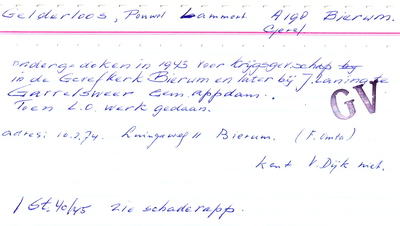 Gelderloos, Pouwel Lammert A198 Bierum.
Geref.
ondergedoken in 1943 voor krijgsgerschap
in de Gerefkerk Bierum en later bij J. Laninga
Garrelsweer Gem. appdam.
Toen L.O. werk gedaan.
GV
adres: 10.2.74. 11 Bierum. (F. Omta)
kent V. Dijk niet.
/ St. 40/45 zie schaderapp.